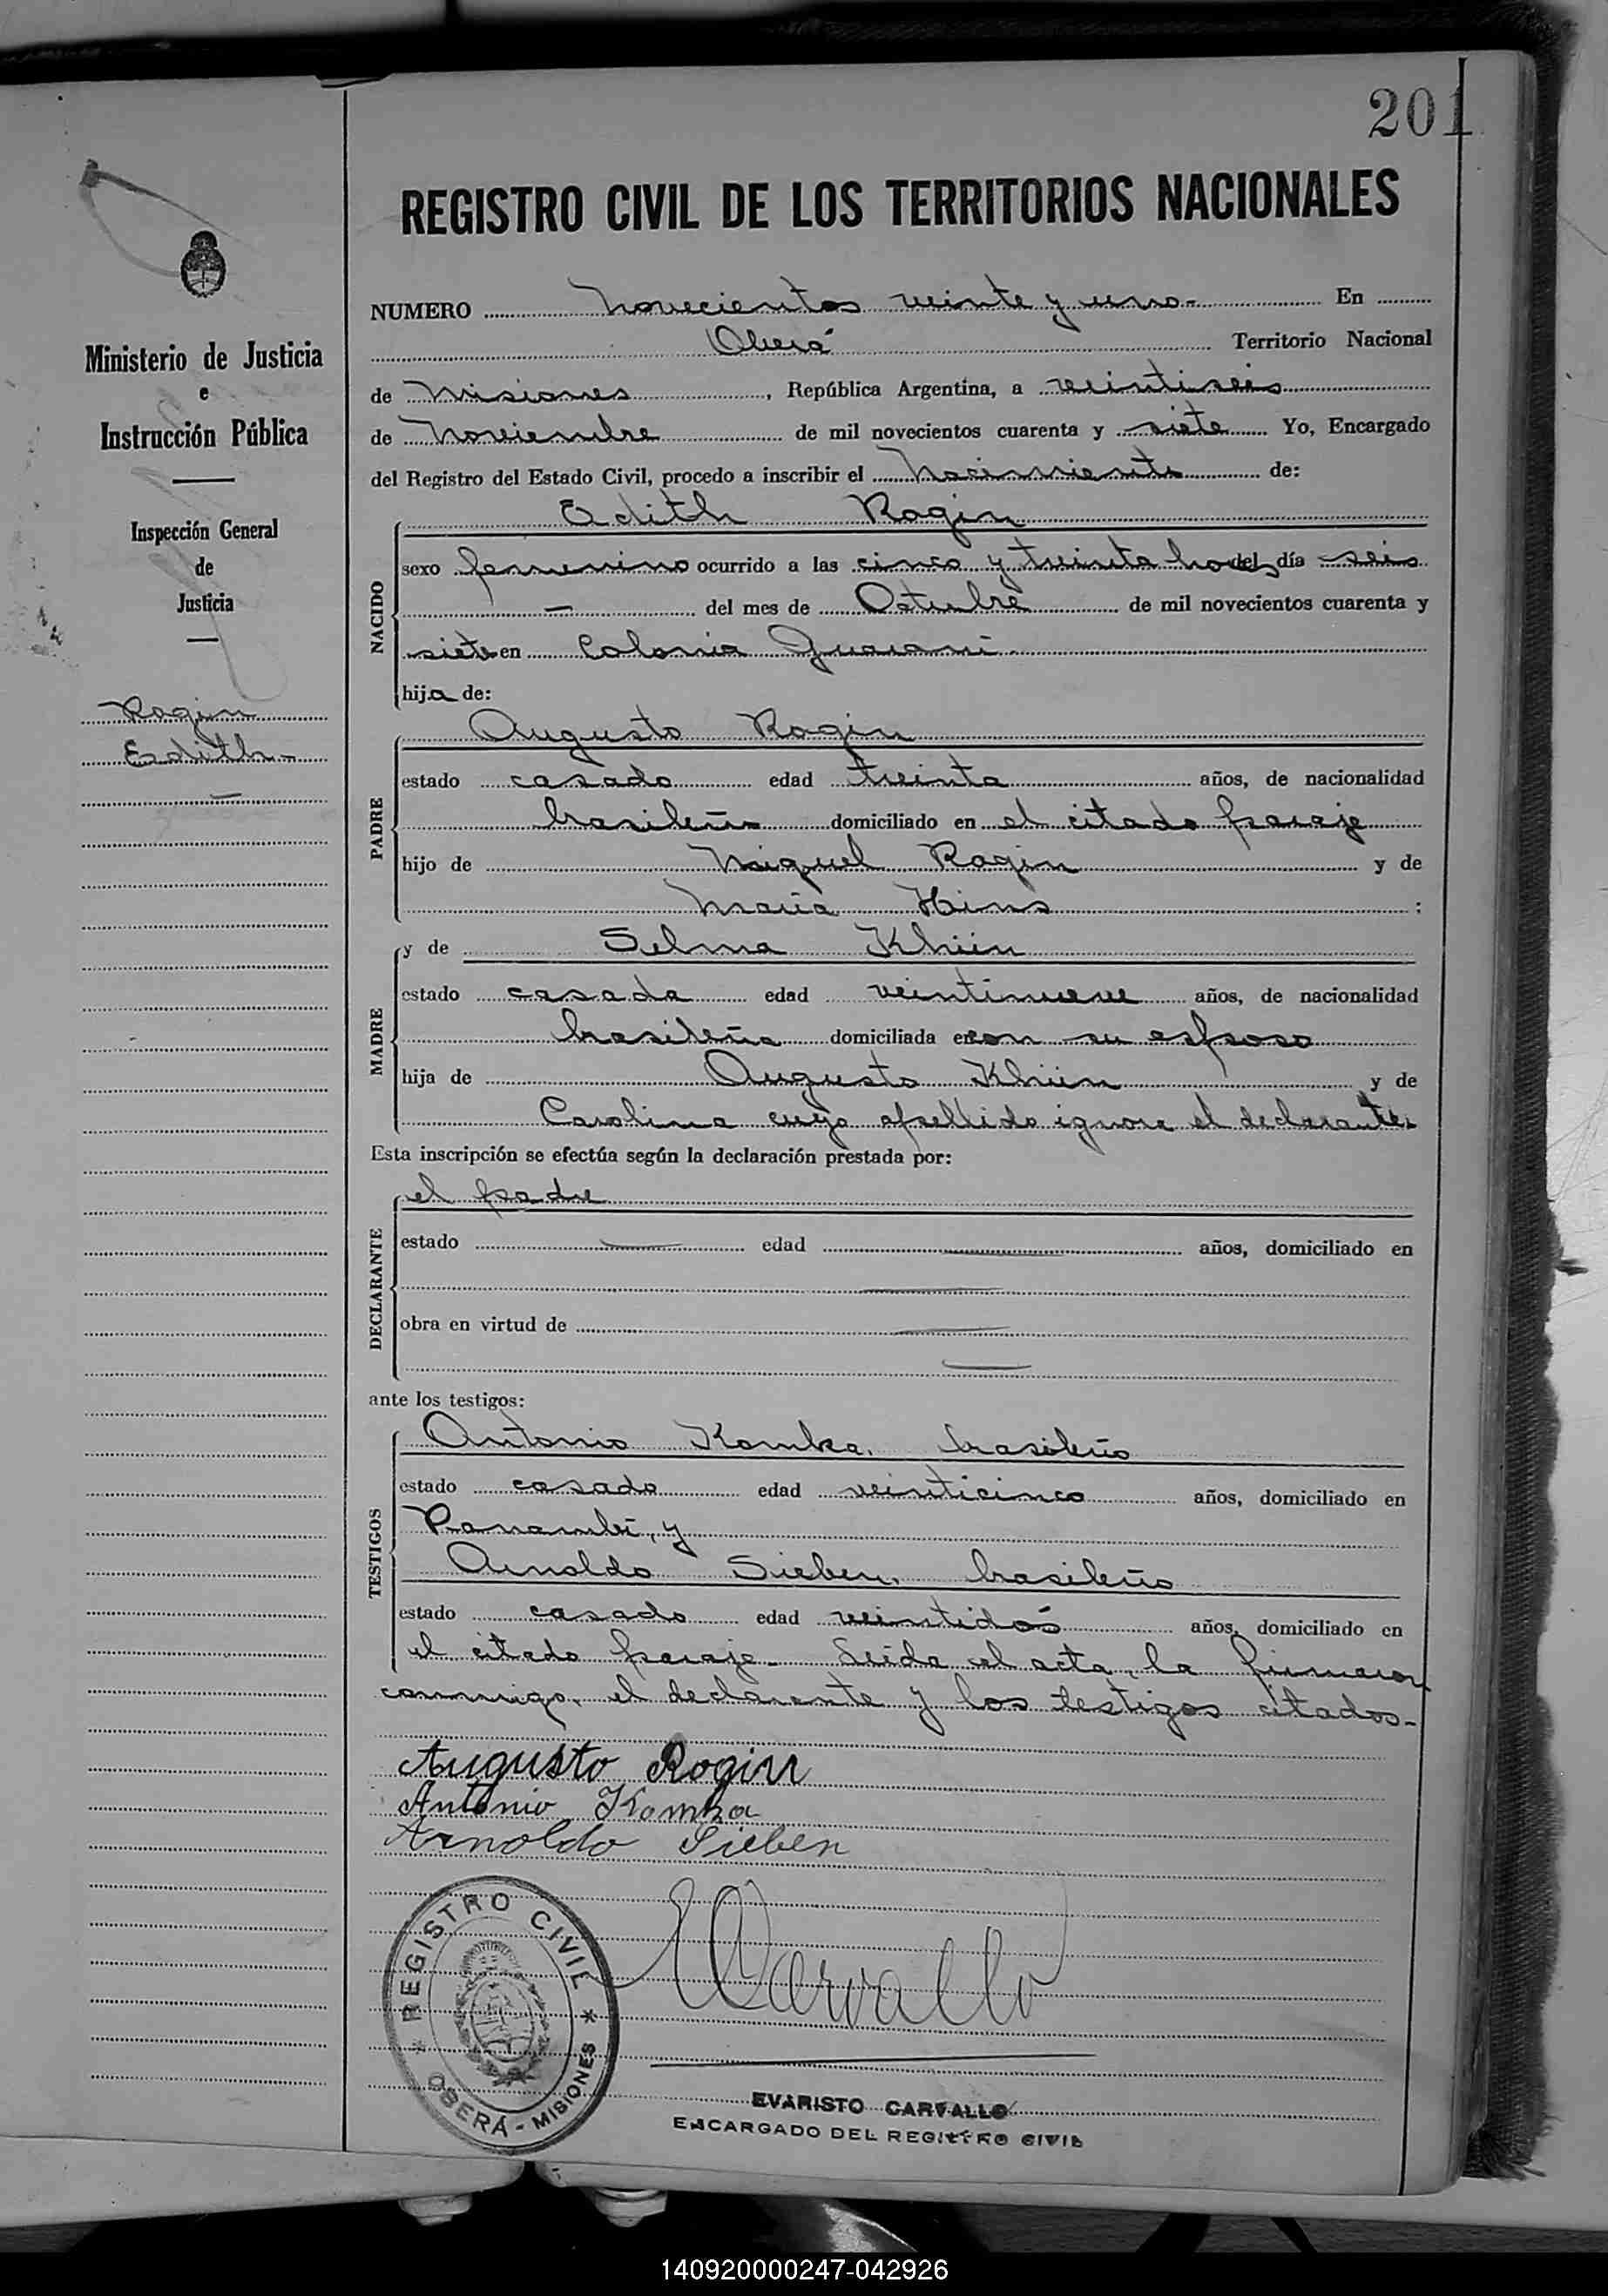 201
REGISTRO CIVIL DE LOS TERRITORIOS NACIONALES
Ministerio de Justicia
e
Instrucción Pública
Inspección General
de
Justicia
Rogin
Edith-
NUMERO Novecientos veinte y uno- En
Oberá Territorio Nacional
de Misiones, República Argentina, a veintiseis
de Noviembre de mil novecientos cuarenta y siete Yo, Encargado
del Registro del Estado Civil, procedo a inscribir el Nacimiento de:
Edith Rogin
NACIDO
sexo femenino ocurrido a las cinco y treinta horas del día seis
— del mes de Octubre de mil novecientos cuarenta y
siete en Colonia Guarani
hija de:
Augusto Rogin
PADRE
estado casado edad treinta años, de nacionalidad
brasileño domiciliado en el citado paraje
hijo de Miguel Rogin y de
María Hins ;
MADRE
y de Selma Khün
estado casada edad veintinueve años, de nacionalidad
brasileña domiciliada en con su esposo
hija de Augusto Khün y de
Carolina cuyo apellido ignora el declarante.
Esta inscripción se efectúa según la declaración prestada por:
DECLARANTE
el padre
estado — edad — años, domiciliado en
—
obra en virtud de —
—
ante los testigos:
TESTIGOS
Antonio Komka, brasileño
estado casado edad veinticinco años, domiciliado en
Panambí, y
Arnoldo Sieben, brasileño
estado casado edad veintidós años, domiciliado en
el citado paraje- Leída el acta, la firmaron
conmigo, el declarante y los testigos citados-
Augusto Rogin
Antonio Komka
Arnoldo Sieben
ECarvallo
REGISTRO CIVIL
* OBERÁ - MISIONES *
EVARISTO CARVALLO
ENCARGADO DEL REGISTRO CIVIL
140920000247-042926